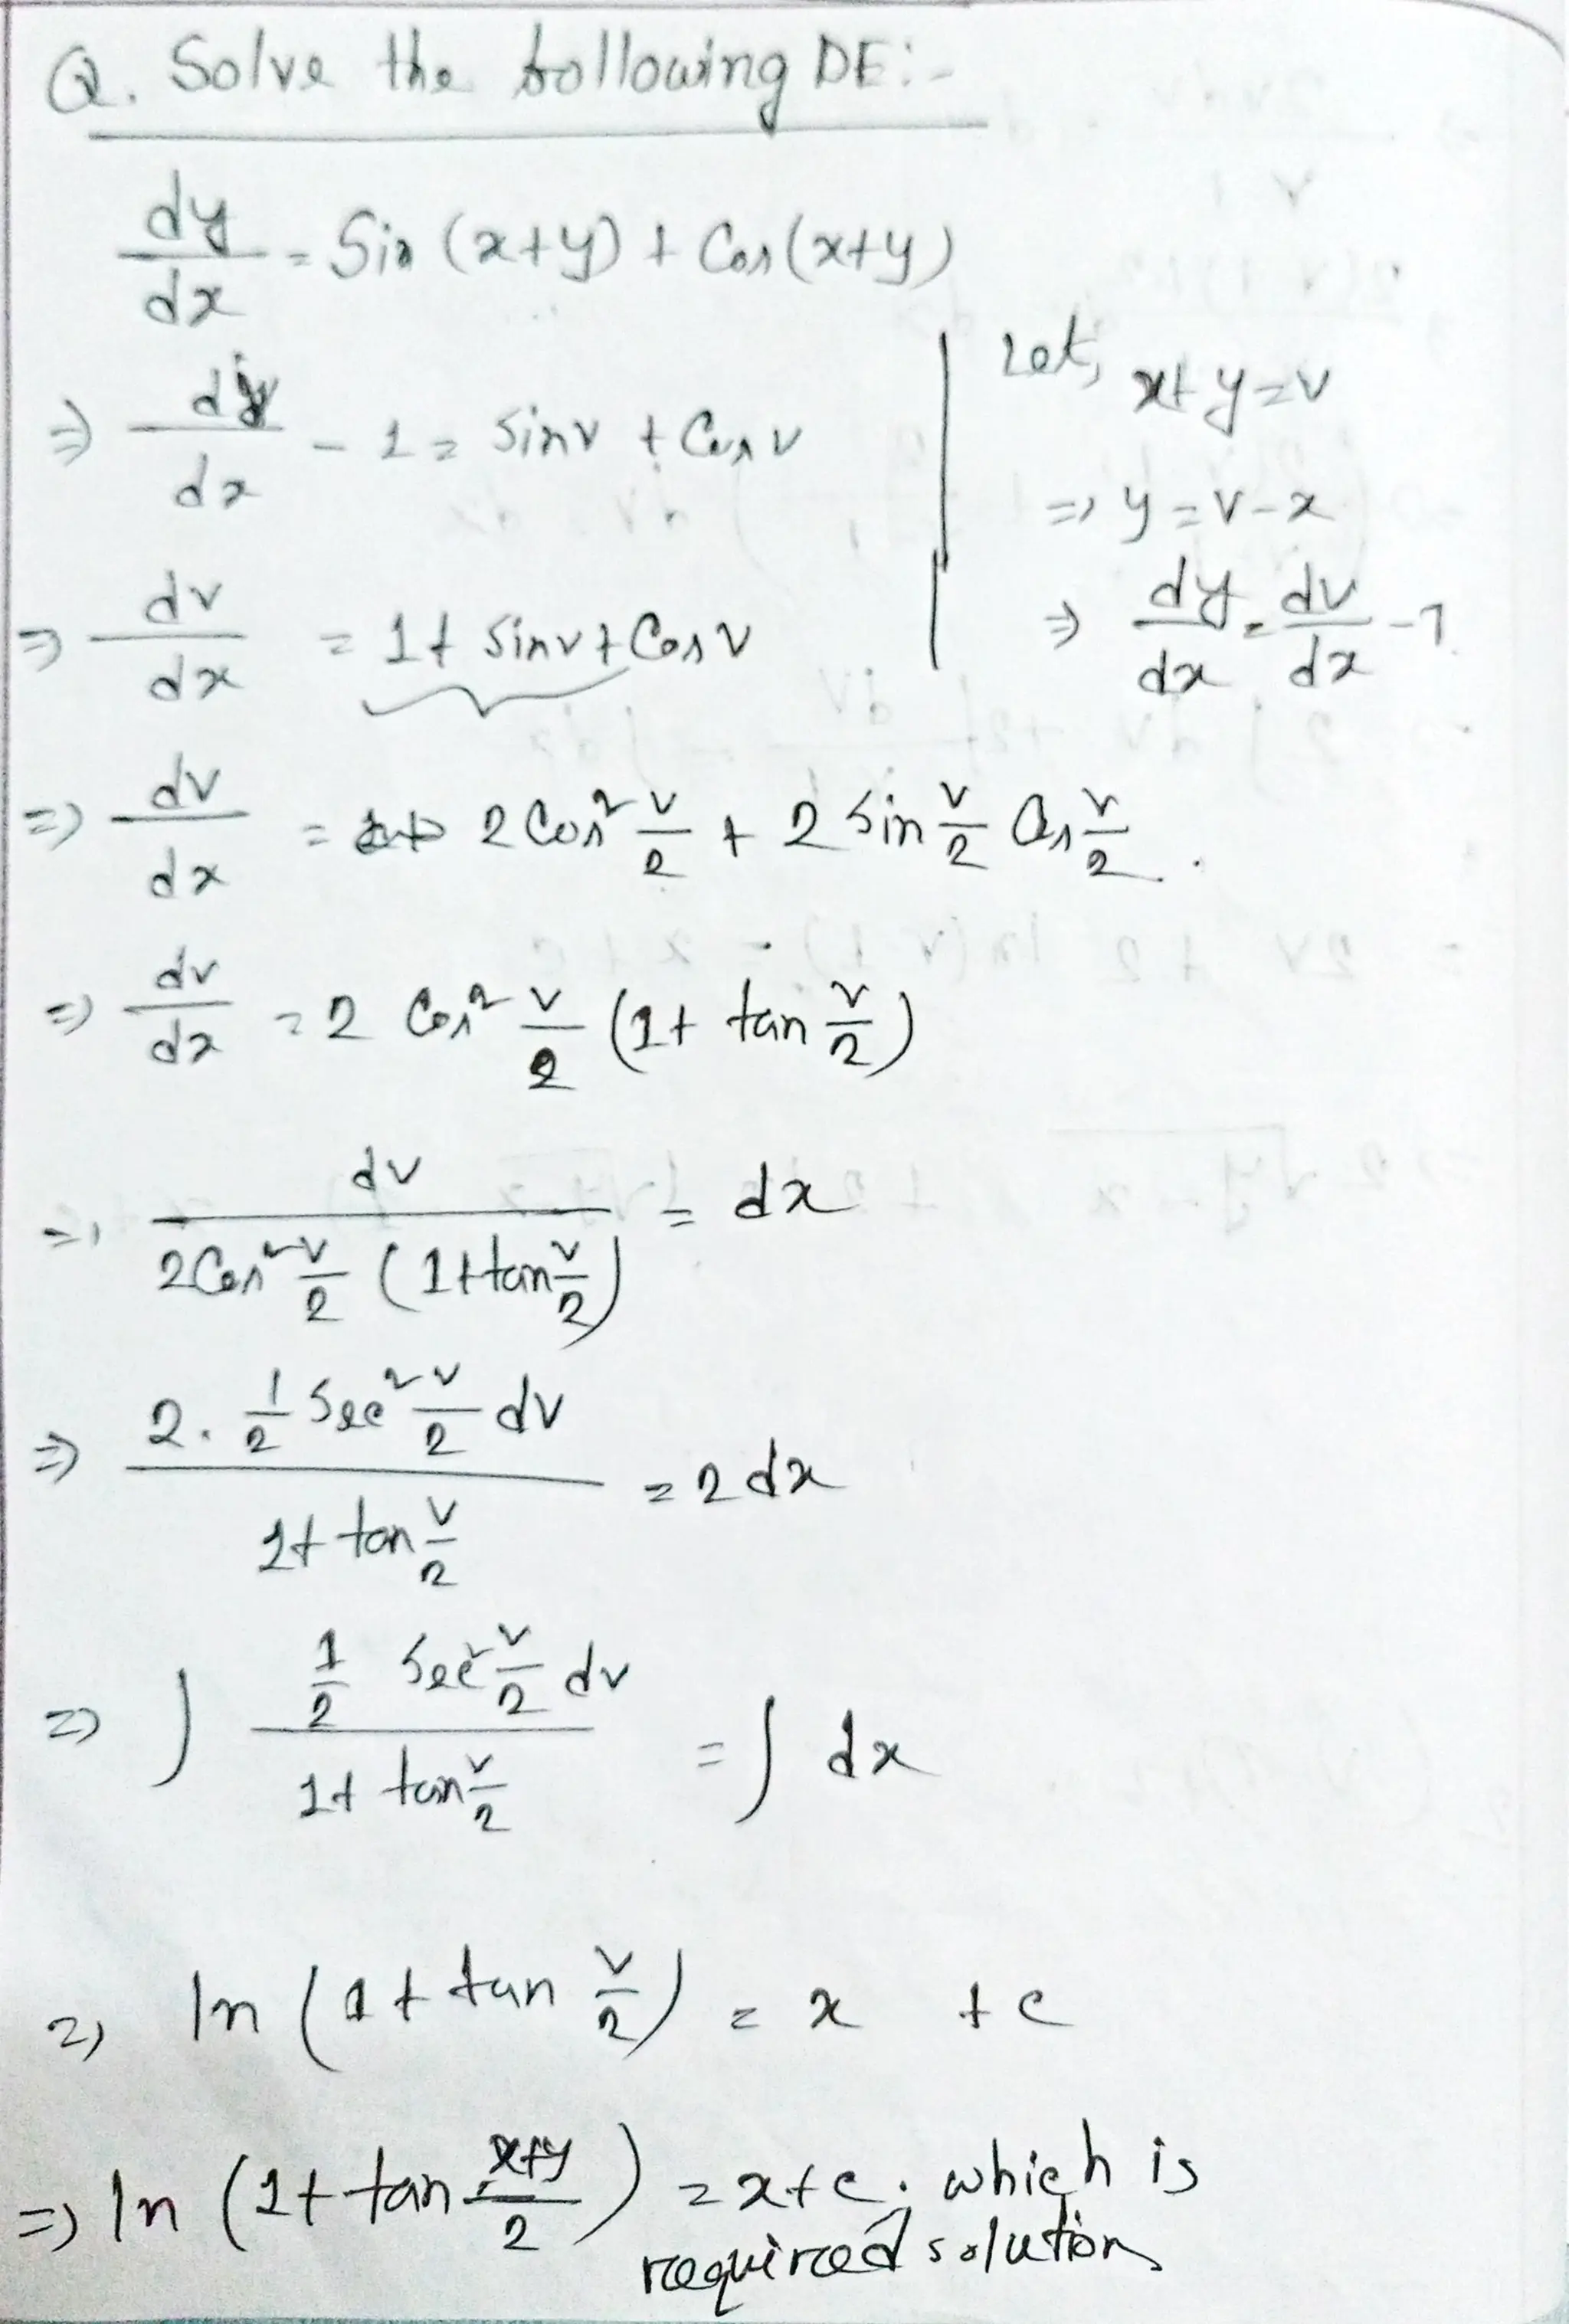 Q. Solve the following DE:-
dy/dx = Sin (x+y) + Cos (x+y)
Let, x+y=v
⇒ y=v-x
⇒ dy/dx = dv/dx -1
⇒ dy/dx - 1 = sinv + Cosv
⇒ dv/dx = 1+ sinv+Cosv
⇒ dv/dx = 2Cos² v/2 + 2 sin v/2 Cos v/2 .
⇒ dv/dx = 2 Cos² v/2 (1+ tan v/2)
⇒ dv/(2Cos² v/2 (1+tan v/2)) = dx
⇒ (2. 1/2 Sec² v/2 dv)/(1+ tan v/2) = 2 dx
⇒ ∫ (1/2 Sec² v/2 dv)/(1+ tan v/2) = ∫ dx
⇒ ln (1+ tan v/2) = x + c
⇒ ln (1+ tan (x+y)/2) = x+c; which is
required solution